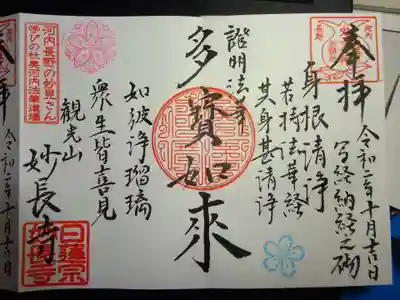 奉拝
令和二年十月吉日
写経納経之砌
身根清浄
若持法華経
其身甚清浄
證明法華
多寳如來
如彼浄瑠璃
衆生皆喜見
観光山
妙長寺
河内長野の妙見さん
学びの杜奥河内法華道場
日蓮宗
奉拝
令和二年十月吉日